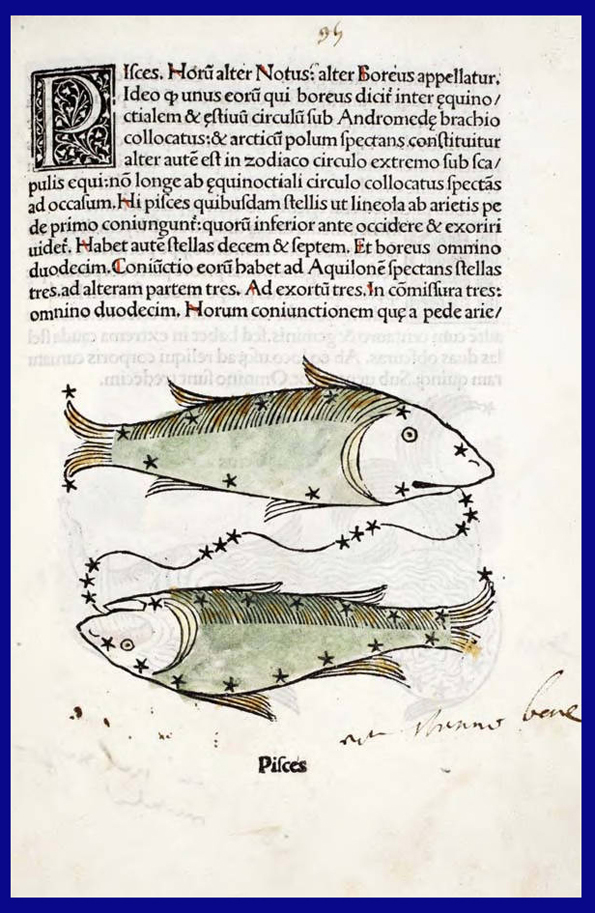 Piſces. Horū alter Notus: alter Boreus appellatur.
Ideo ꝙ unus eorū qui boreus dicit̄ inter ęquino/
ctialem & ęſtiuū circulū ſub Andromedę brachio
collocatus:& arcticū polum ſpectans conſtituitur
alter autē eſt in zodiaco circulo extremo ſub ſca/
pulis equi:nō longe ab ęquinoctiali circulo collocatus ſpectās
ad occaſum. Hi piſces quibuſdam ſtellis ut lineola ab arietis pe
de primo coniungunt̄: quorū inferior ante occidere & exoriri
uidet̄. Habet autē ſtellas decem & ſeptem. Et boreus omnino
duodecim. Coniūctio eorū habet ad Aquilonē ſpectans ſtellas
tres. ad alteram partem tres. Ad exortū tres. In cōmiſſura tres:
omnino duodecim. Horum coniunctionem quę a pede arie/
bene
Piſces